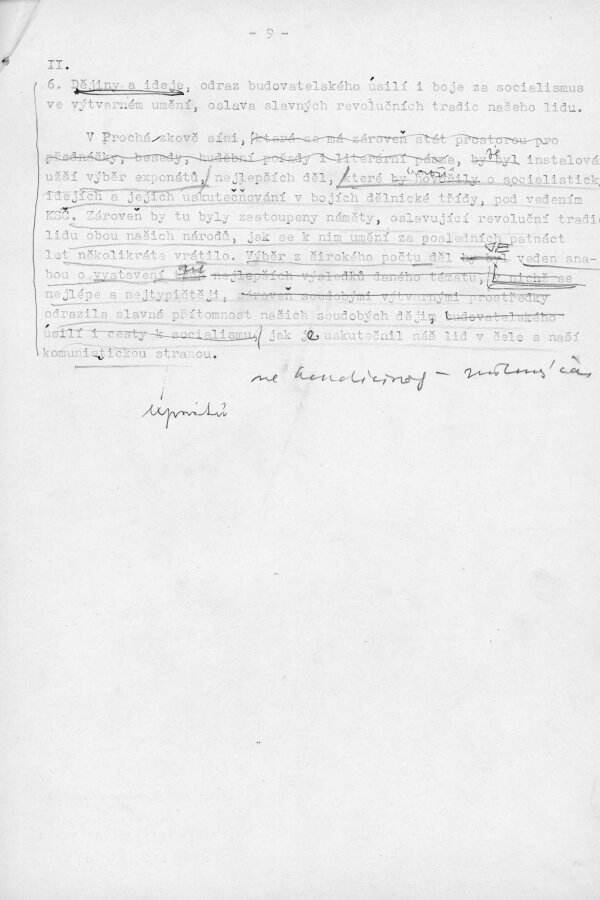 - 9 -
II.
6. Dějiny a ideje, odraz budovatelského úsilí i boje za socialismus
ve výtvarném umění, oslava slavných revolučních tradic našeho lidu.
V Procházkově síni, která se má zároveň stát prostorou pro
přednášky, besedy, hudební pořady i literární pásma, by byl instalován
užší výběr exponátů, nejlepších děl, které by hovořily o socialistických
idejích a jejich uskutečňování v bojích dělnické třídy, pod vedením
KSČ. Zároveň by tu byly zastoupeny náměty, oslavující revoluční tradice
lidu obou našich národů, jak se k nim umění za posledních patnáct
let několikráte vrátilo. Výběr z širokého počtu děl by byl JE veden sna-
hou o vystavení nejlepších výsledků daného tématu, v nichž se
nejlépe a nejtypičtěji, zároveň soudobými výtvarnými prostředky
odrazila slavná přítomnost našich soudobých dějin, budovatelského
úsilí i cesty k socialismu, jak je uskutečnil náš lid v čele s naší
komunistickou stranou.
ne